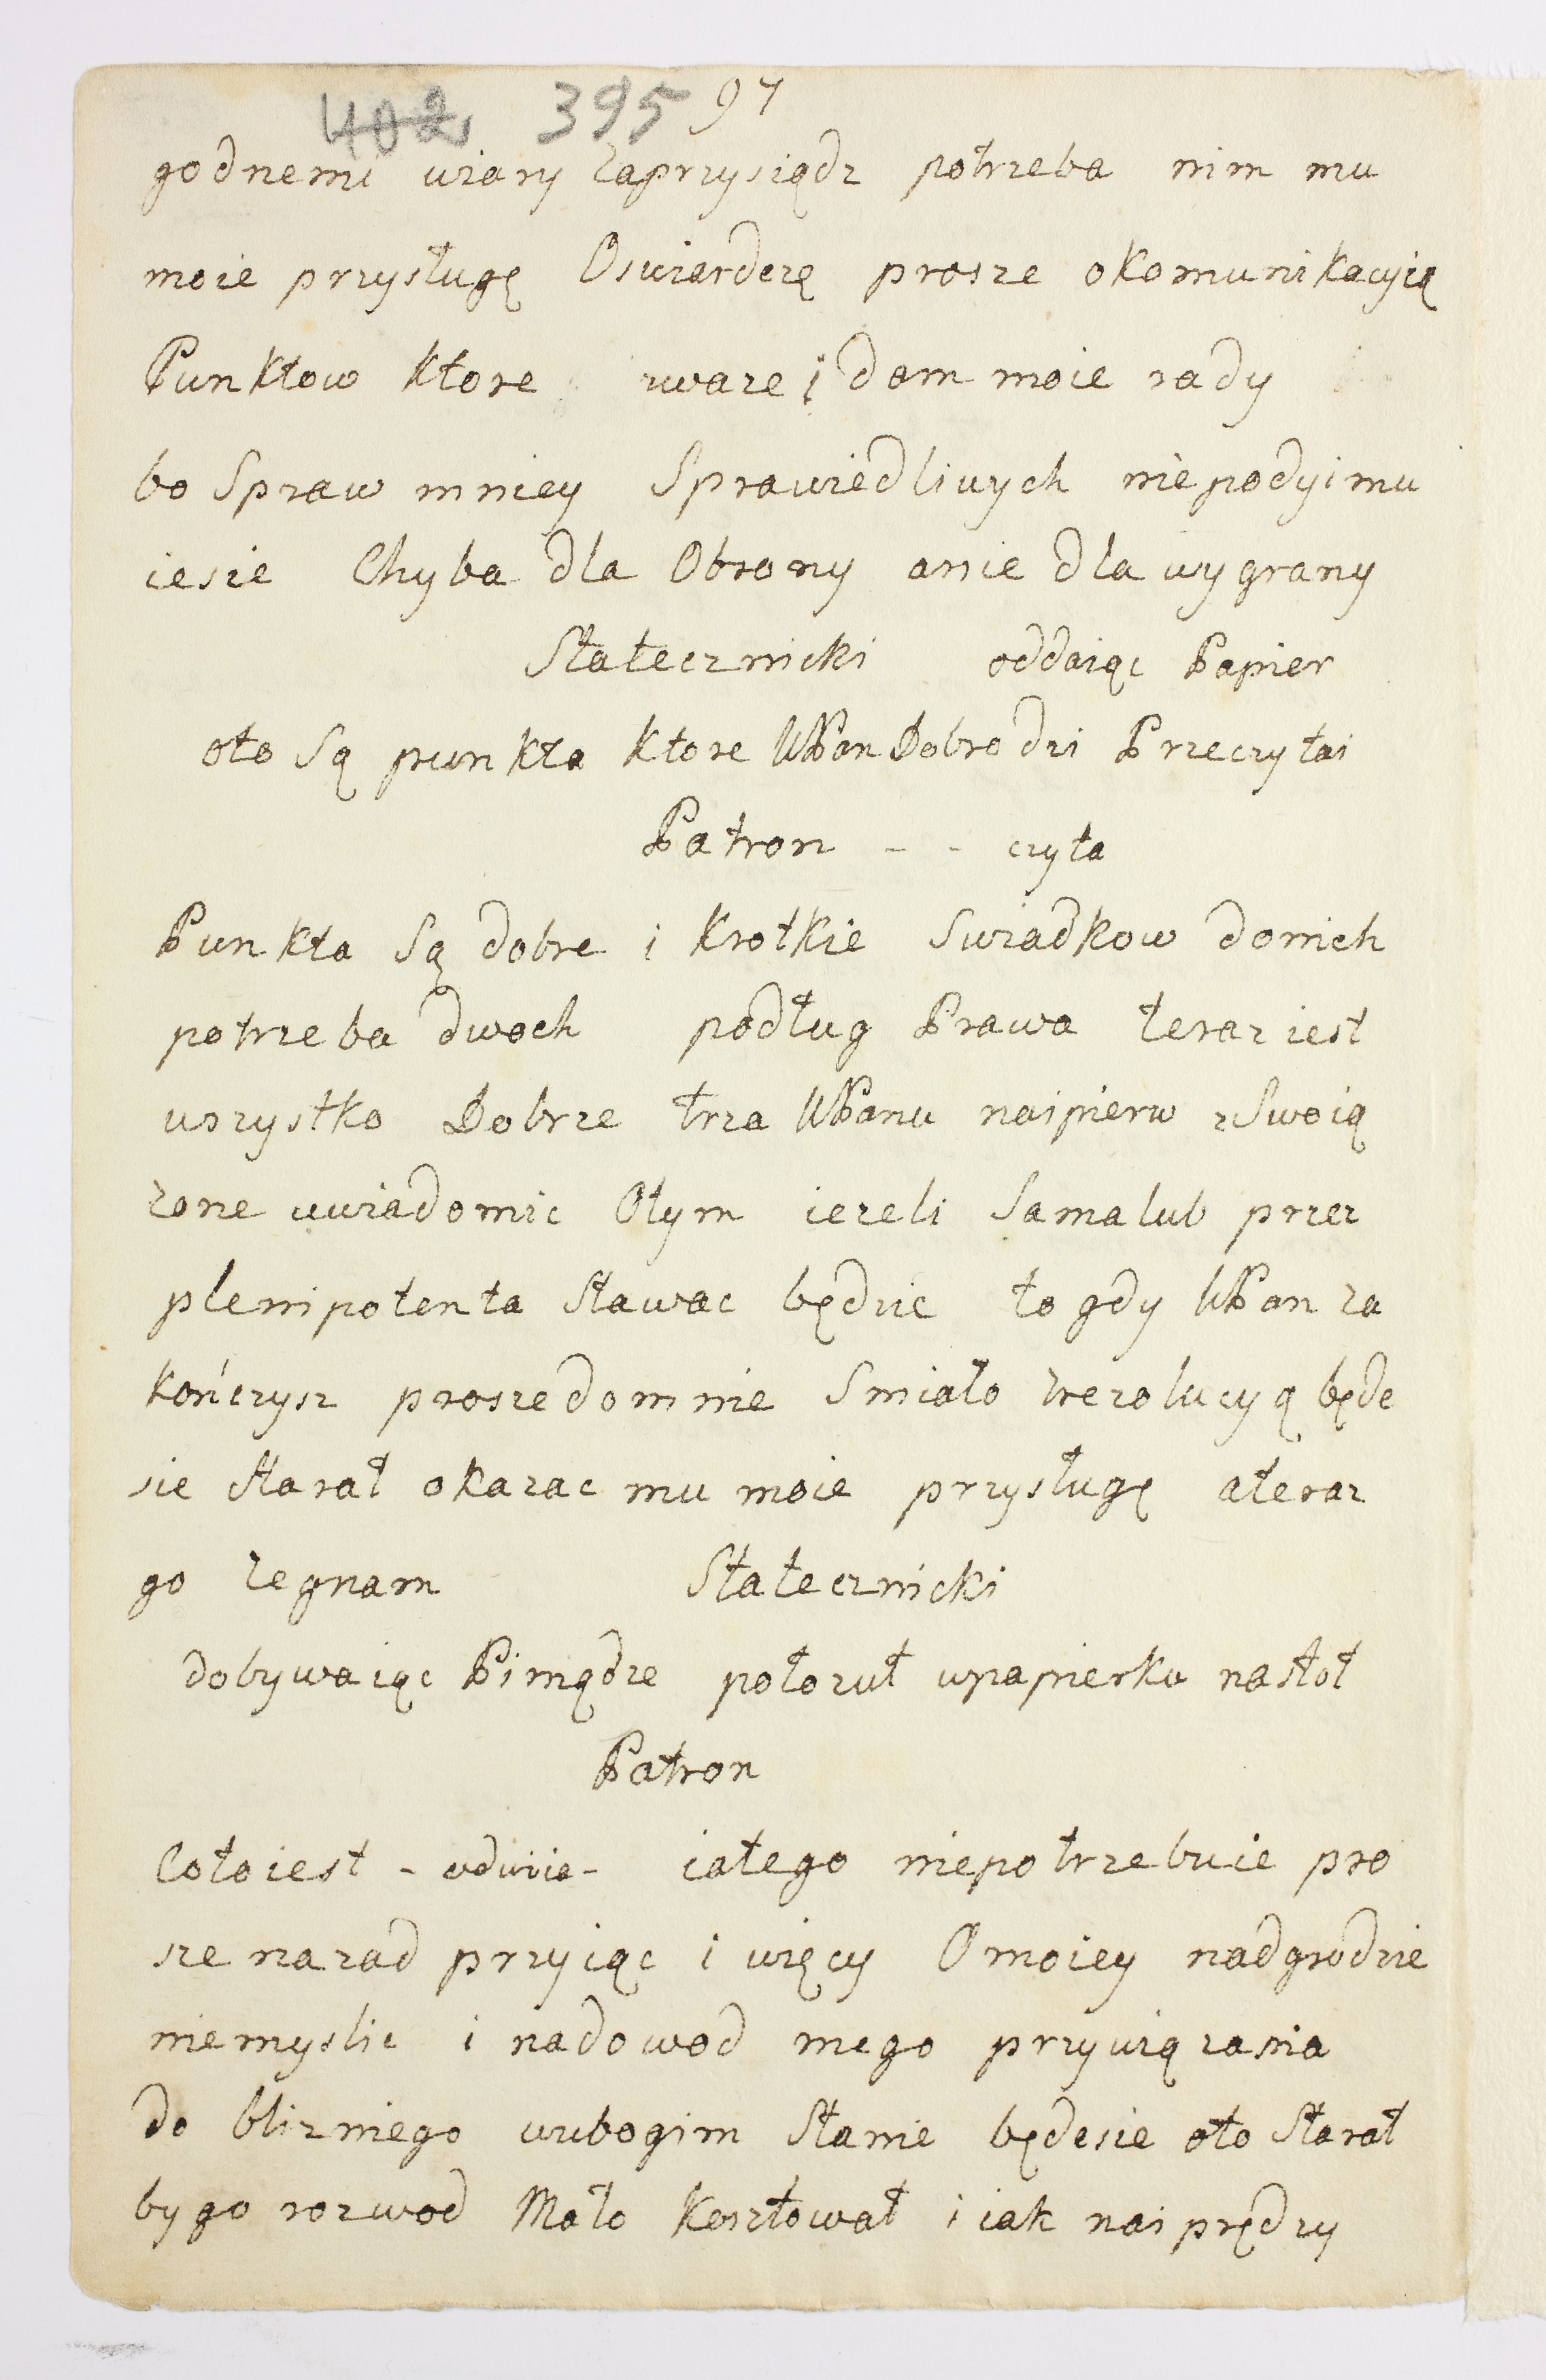 402 395 97
godnemi wiary zaprzysiądz potrzeba nim mu
moie przysługę Oswiardczę prosze okomunikacyią
Punktow ktore zwaze i dam moie rady
bo Spraw mniey Sprawiedliwych niepodyimu
iesie Chyba dla Obrony anie dla wygrany
Statecznicki oddaiąc Papier
oto Są punkta ktore WPan Dobrodzi Przeczytai
Patron - - czyta
Punkta Są dobre i krotkie Swiadkow donich
potrzeba dwoch podług Prawa teraz iest
wszystko Dobrze trza WPanu naipierw zSwoią
zone uwiadomic Otym iezeli Sama lub przez
plenipotenta stawac będzie to gdy WPan za
kończysz prosze domnie Smiało zrezolucyą będe
sie starał okazac mu moie przysługę ateraz
go zegnam Statecznicki
dobywaiąc Piniądze połozuł wpapierku nastoł
Patron
Cotoiest - odwiia - iatego niepotrzebuie pro
sze nazad przyiąc i więcy O moiey nadgrodzie
niemyslic i nadowod mego przywiązania
do blizniego wubogim Stanie będesie oto Starał
by go rozwod Mało kosztował i iak naiprędzy